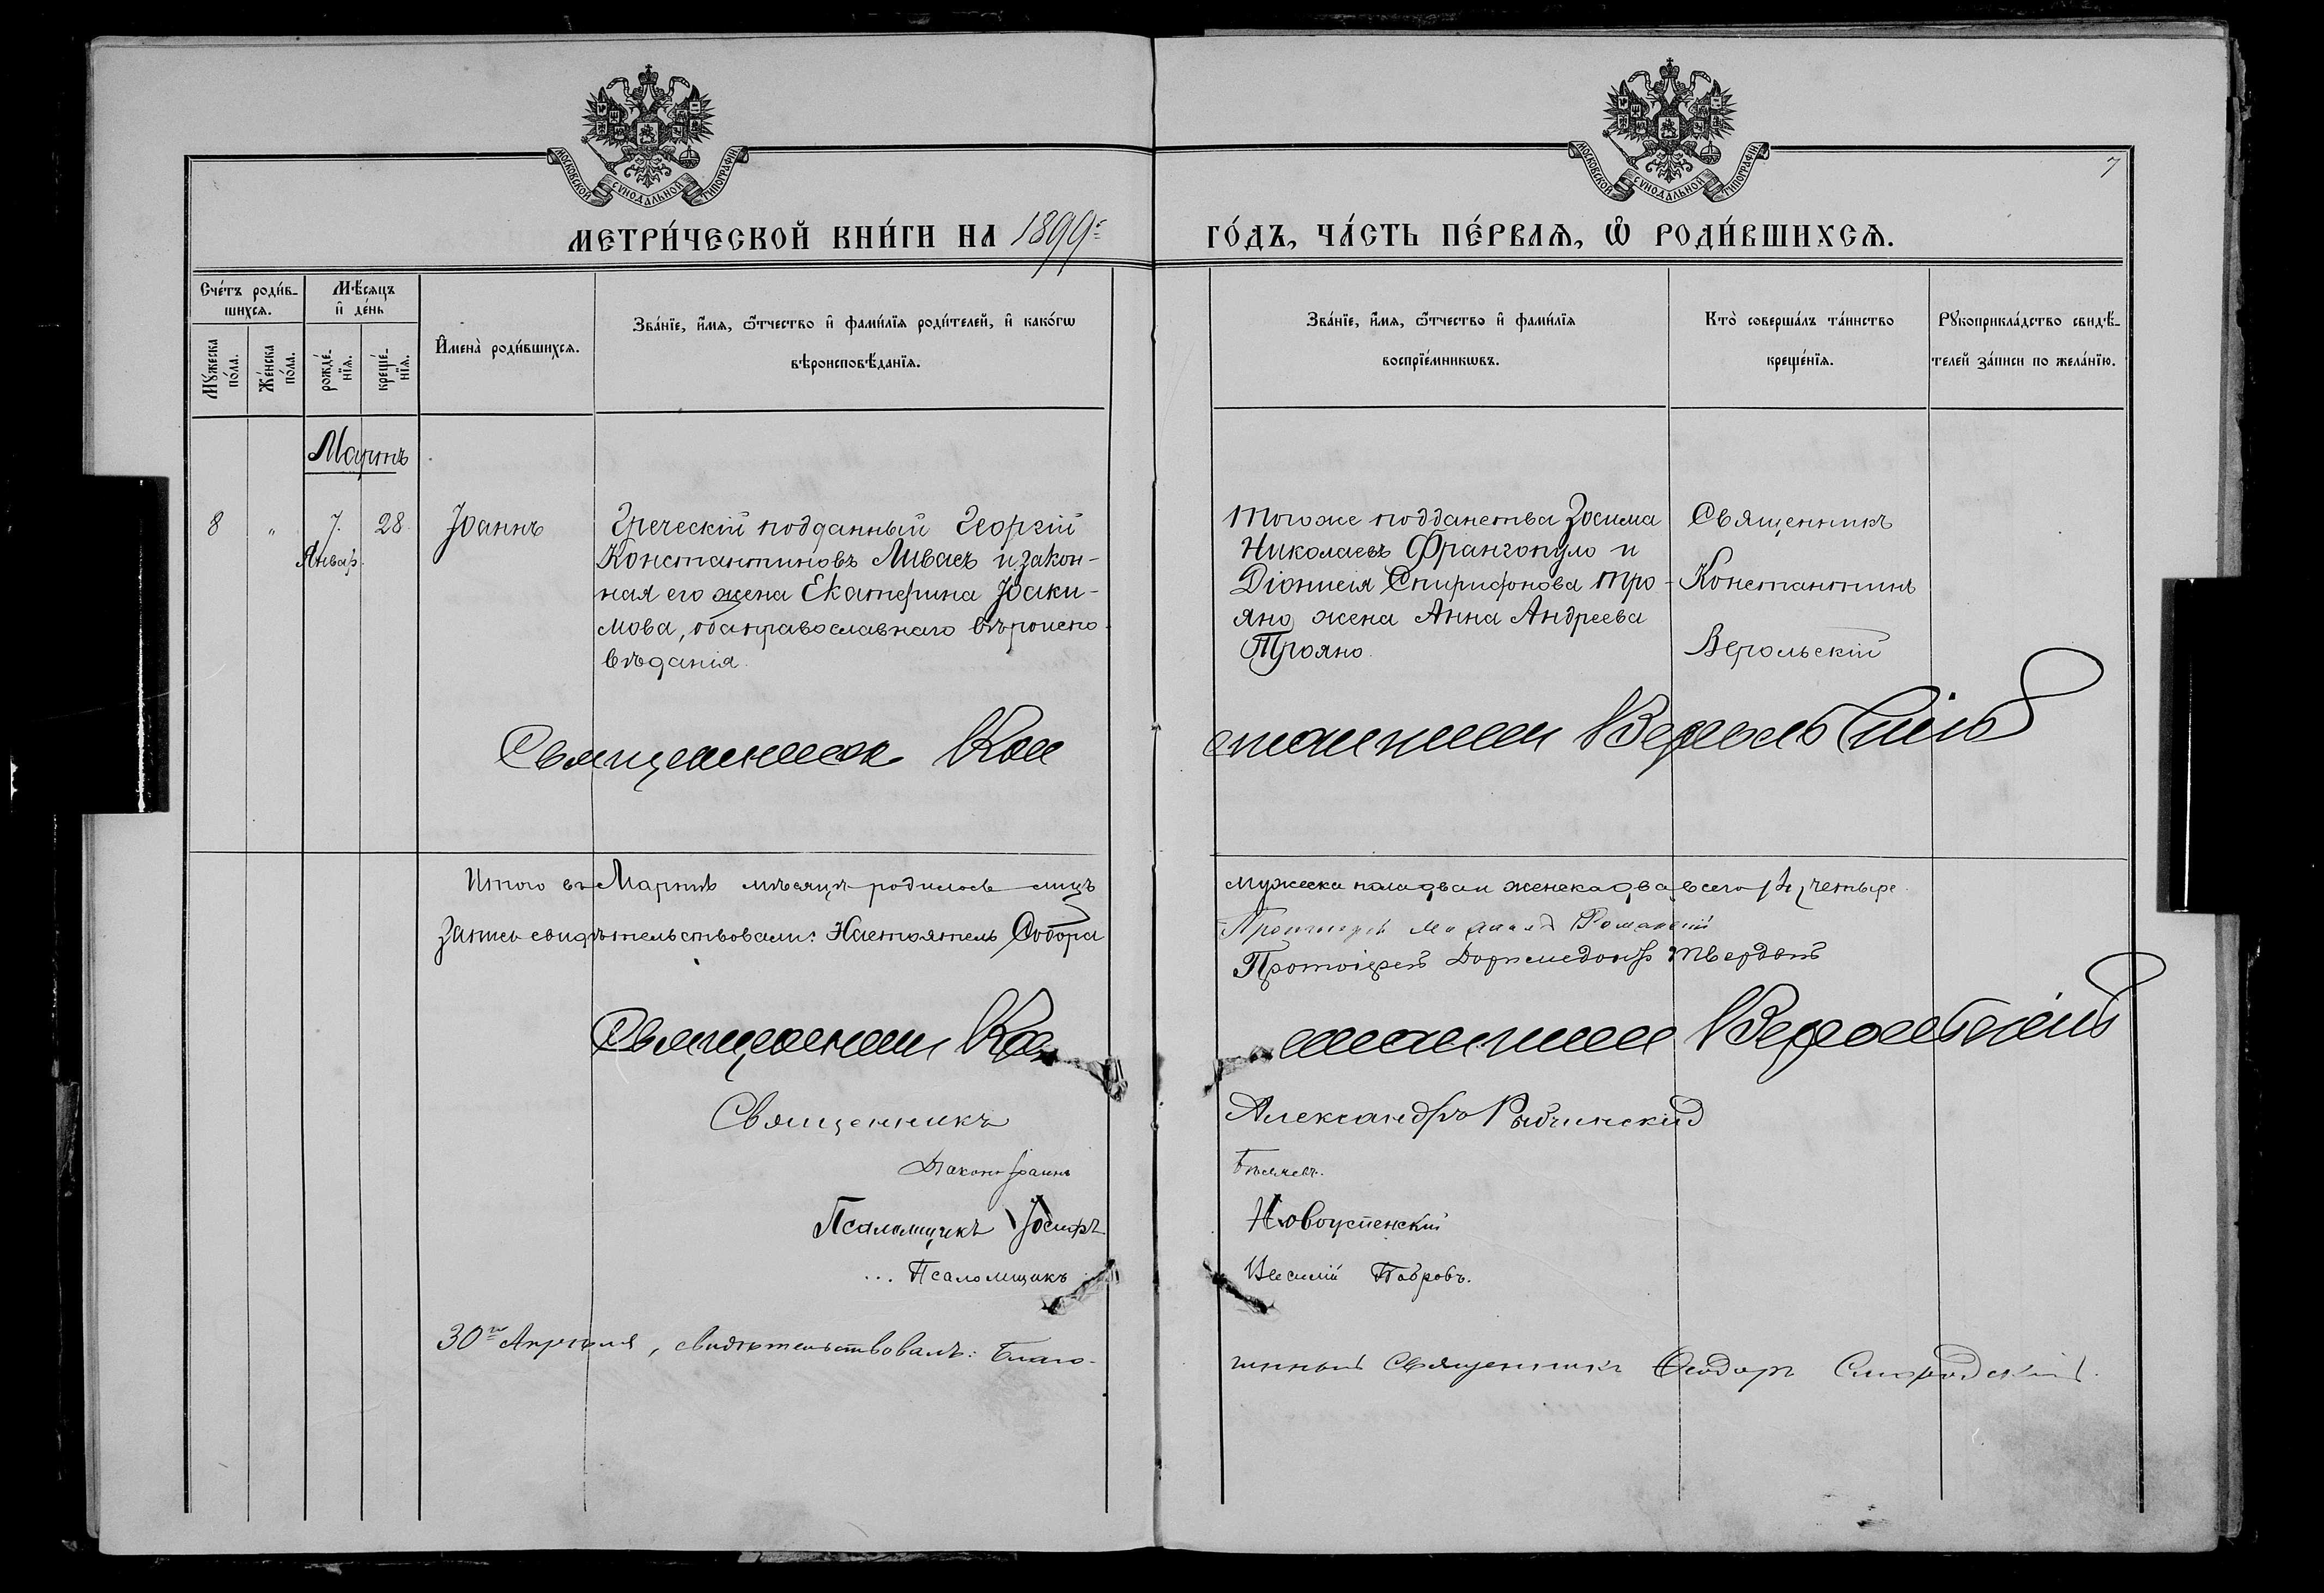 МОСКОВСКОЙ СѴНОДАЛЬНОЙ ТИПОГРАФІИ
МОСКОВСКОЙ СѴНОДАЛЬНОЙ ТИПОГРАФІИ
7
МЕТРИ́ЧЕСКОЙ КНИ́ГИ НА 1899 ГО́ДЪ, ЧА́СТЬ ПЕ́РВАѦ, Ѡ҆ РОДИ́ВШИХСѦ.
Сче́тъ роди́в-
шихсѧ.
Мꙋ́жеска по́ла.
Же́нска по́ла.
Мѣ́сѧцъ
и҆ де́нь
рожде́-
нїѧ.
креще́-
нїѧ.
И҆мена̀ роди́вшихсѧ.
Зва́нїе, и҆́мѧ, ѻ҆́тчество и҆ фами́лїѧ роди́телей, и҆ како́гѡ
вѣроисповѣ́данїѧ.
Зва́нїе, и҆́мѧ, ѻ҆́тчество и҆ фами́лїѧ
воспрїе́мникѡвъ.
Кто̀ соверша́лъ та́инство
креще́нїѧ.
Рꙋкоприкла́дство свидѣ́-
телей за́писи по жела́нїю.
Мартъ
8 " 7. 28 Іоаннъ
Январ.
Греческій подданный Георгій
Константиновъ Ливаєъ и закон-
ная его жена Екатерина Іоаки-
мова, оба православнаго вѣроиспо-
вѣданія.
Того же подданства Зосима
Николаевъ Франгопуло и
Діонисія Спиридонова Тро-
яно жена Анна Андреева
Трояно.
Священникъ
Константинъ
Верольскій
Священникъ Константинъ Верольскій
Итого въ Мартѣ мѣсяцѣ родилось лицъ мужеска пола два и женска два, всего /4/ четыре.
Запись свидѣтельствовали: Настоятель Собора
Протоіерей
Священникъ Константинъ Верольскій
Священникъ Александръ
Діаконъ Іоаннъ Бѣляевъ.
Псаломщикъ Іосифъ Новоуспенскій
Псаломщикъ Василій
30го Апрѣля, свидѣтельствовалъ: Благо-
чинный Священникъ Ѳеодоръ